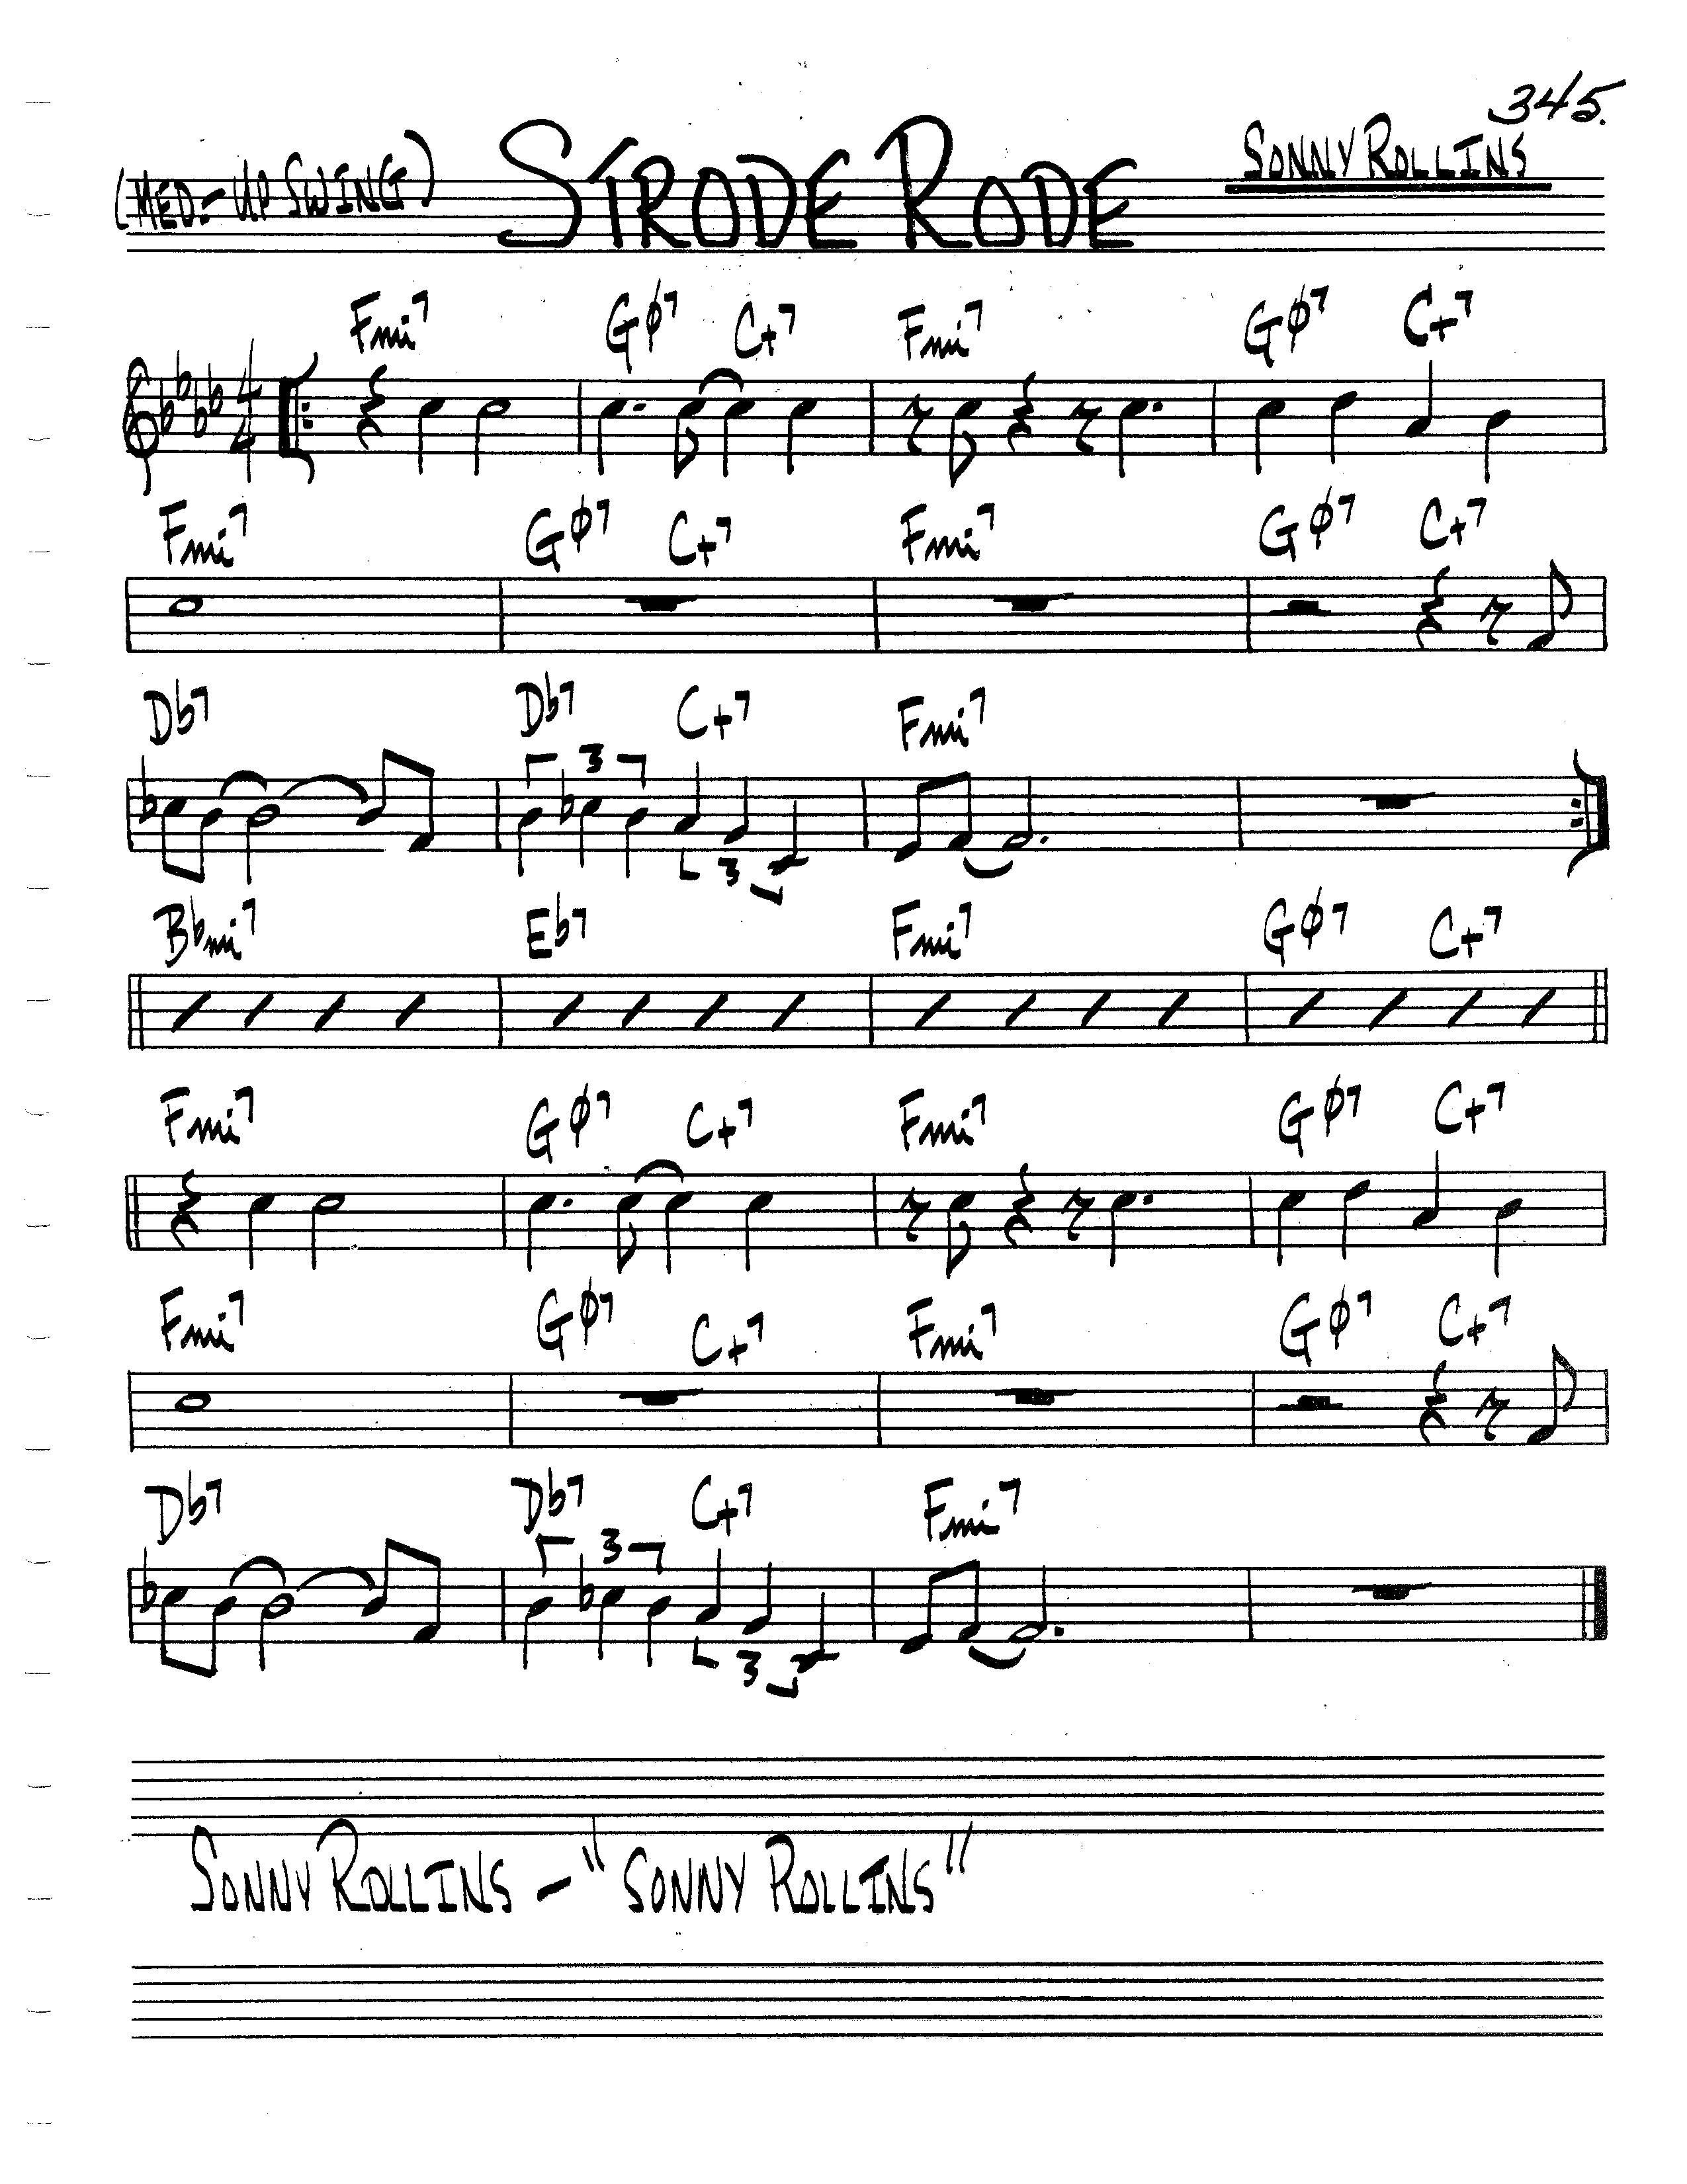 345.
(MED.-UP SWING) STRODE RODE SONNY ROLLINS
Fmi7 Gø7 C+7 Fmi7 Gø7 C+7
4
4
Fmi7 Gø7 C+7 Fmi7 Gø7 C+7
Db7 Db7 C+7 Fmi7
3
3
Bbmi7 Eb7 Fmi7 Gø7 C+7
Fmi7 Gø7 C+7 Fmi7 Gø7 C+7
Fmi7 Gø7 C+7 Fmi7 Gø7 C+7
Db7 Db7 C+7 Fmi7
3
3
SONNY ROLLINS - "SONNY ROLLINS"